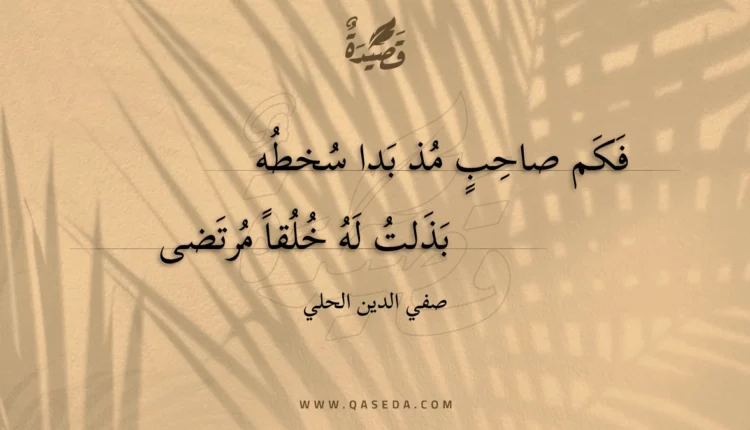 قَصِيْدَةٌ
فَكَم صاحِبٍ مُذ بَدا سُخطُه
بَذَلتُ لَهُ خُلُقاً مُرتَضى
صفي الدين الحلي
WWW.QASEDA.COM